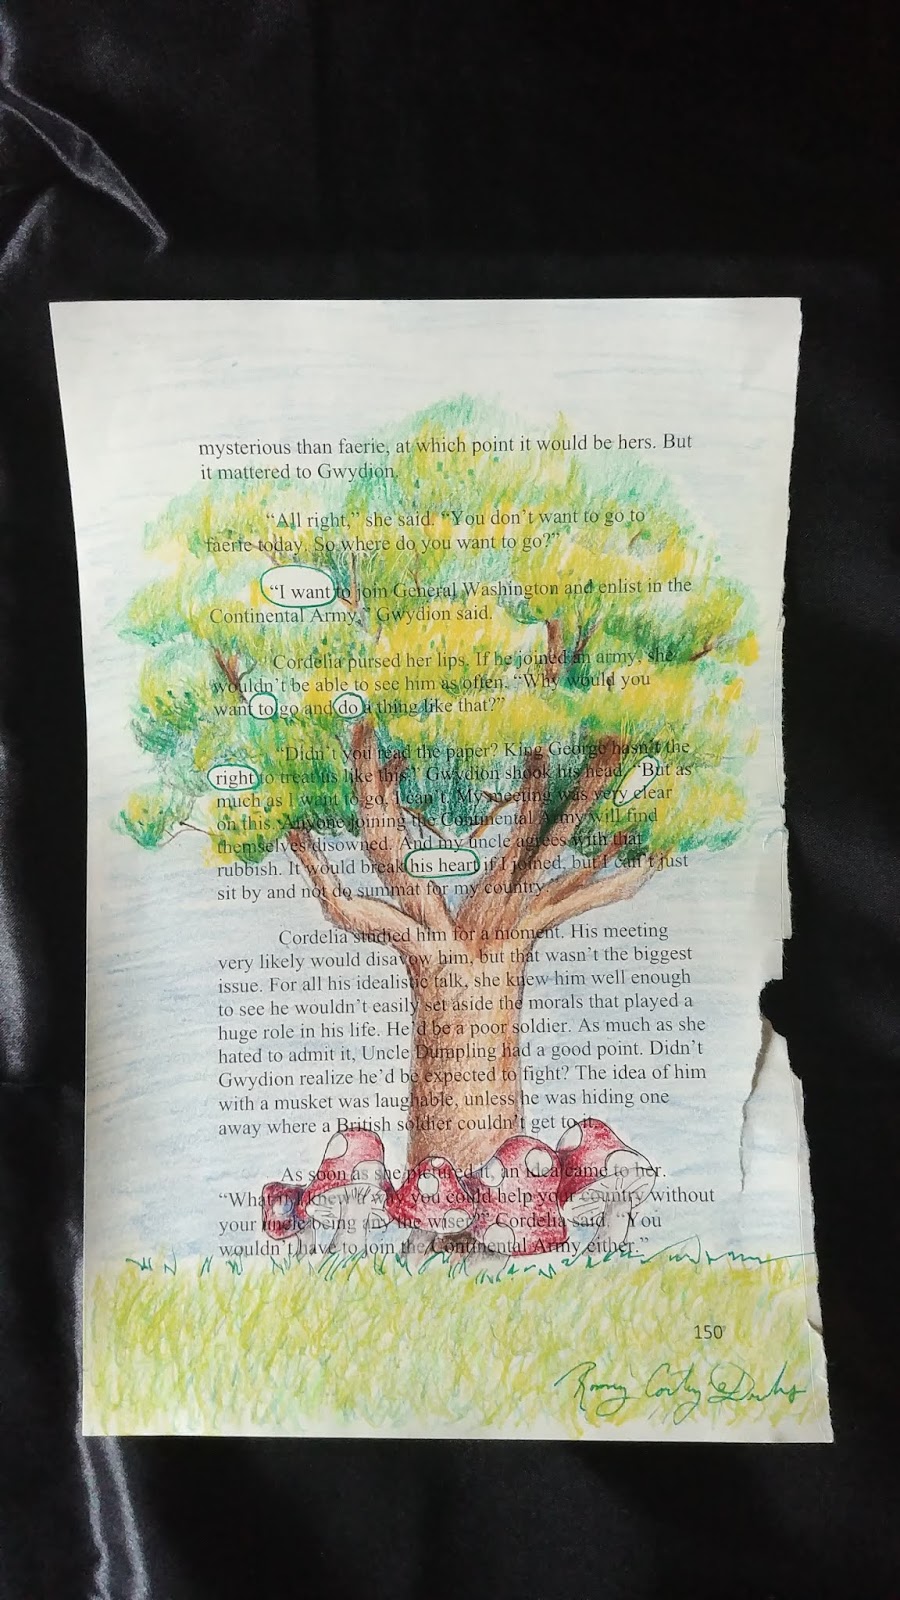 mysterious than faerie, at which point it would be hers. But
it mattered to Gwydion.
“All right,” she said. “You don’t want to go to
faerie today. So where do you want to go?”
“I want to join General Washington and enlist in the
Continental Army,” Gwydion said.
Cordelia pursed her lips. If he joined an army, she
wouldn’t be able to see him as often. “Why would you
want to go and do a thing like that?”
“Didn’t you read the paper? King George hasn’t the
right to treat us like this.” Gwydion shook his head. “But as
much as I want to go, I can’t. My meeting was very clear
on this. Anyone joining the Continental Army will find
themselves disowned. And my uncle agrees with that
rubbish. It would break his heart if I joined, but I can’t just
sit by and not do summat for my country.
Cordelia studied him for a moment. His meeting
very likely would disavow him, but that wasn’t the biggest
issue. For all his idealistic talk, she knew him well enough
to see he wouldn’t easily set aside the morals that played a
huge role in his life. He’d be a poor soldier. As much as she
hated to admit it, Uncle Dumpling had a good point. Didn’t
Gwydion realize he’d be expected to fight? The idea of him
with a musket was laughable, unless he was hiding one
away where a British soldier couldn’t get to it.
As soon as she pictured it, an idea came to her.
“What if I knew a way you could help your country without
your uncle being any the wiser?” Cordelia said. “You
wouldn’t have to join the Continental Army either.”
150